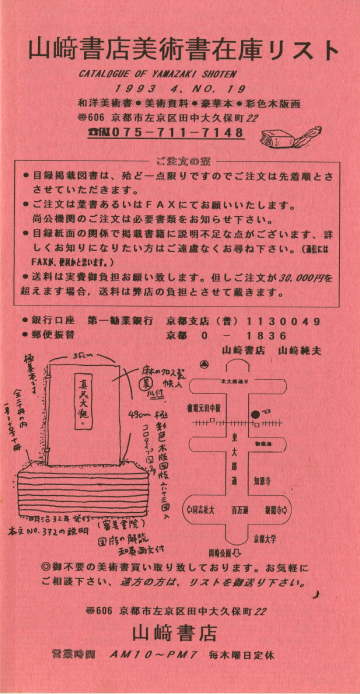 山﨑書店美術書在庫リスト
CATALOGUE OF YAMAZAKI SHOTEN
1993 4. NO. 19
和洋美術書●美術資料●豪華本●彩色木版画
〠606 京都市左京区田中大久保町22
075-711-7148
ご注文の方
●目録掲載図書は、殆ど一点限りですのでご注文は先着順とさ
させていただきます。
●ご注文は葉書あるいはFAXにてお願いいたします。
尚公機関のご注文は必要書類をお知らせ下さい。
●目録紙面の関係で掲載書籍に説明不足な点がございます、詳
しくお知りになりたい方はご遠慮なくお尋ね下さい。
●送料は実費御負担お願い致します。但しご注文が30,000円を
超えます場合、送料は弊店の負担とさせて戴きます。
●銀行口座 第一勧業銀行 京都支店(普)1130049
●郵便振替 京都 0 - 1836
山﨑書店 山﨑純夫
35cm
真美大観
49cm
明治32年発行
(審美書院)
本文NO.372の説明
図版の解説
和英両文付
東大路通
知恩寺
◇同志社大
百万遍
銀閣寺◇
京都大学
◎御不要の美術書買い取り致しております。お気軽に
ご相談下さい、遠方の方は、リストを御送り下さい。
〠606 京都市左京区田中大久保町22
山﨑書店
営業時間 AM10~PM7 毎木曜日定休